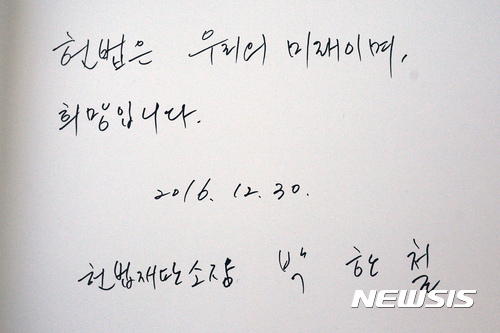 헌법은 우리의 미래이며,
희망입니다.
2016. 12. 30.
헌법재판소장 박 한 철
NEWSIS